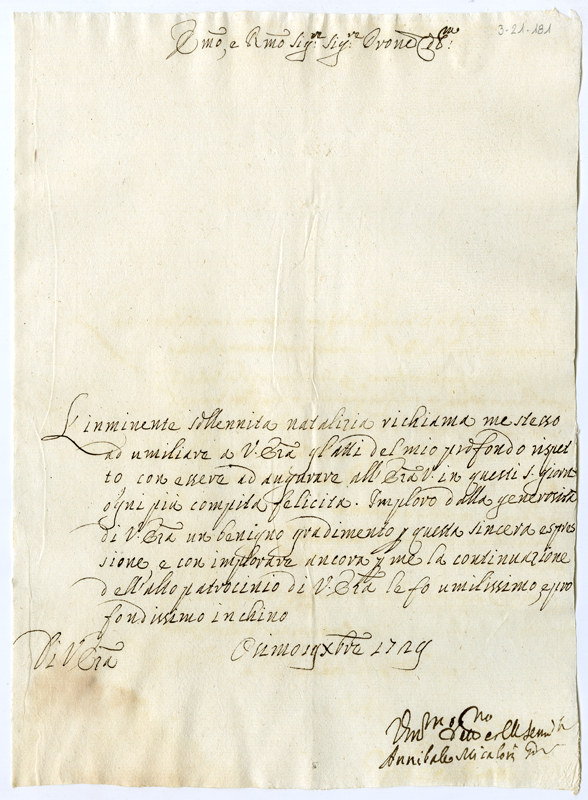 3-21-181
Emo, e Rmo Sigre Sigre Prone Colmo
L'inminente sollennità natalizia richiama me stesso
ad umiliare a V. Era gl'atti del mio profondo rispet
to con essere ad augurare all'Era V. in questi S. giorni
ogni più compita felicità. Imploro dalla generosità
di V. Era un benigno gradimento p questa sincera espres
sione, e con implorare ancora p me la continuazione
dell'alto patrocinio di V. Era le fo umilissimo, e pro
fondissimo inchino
Di V. Era Osimo 19 Xbre 1729
Annibale Micalori